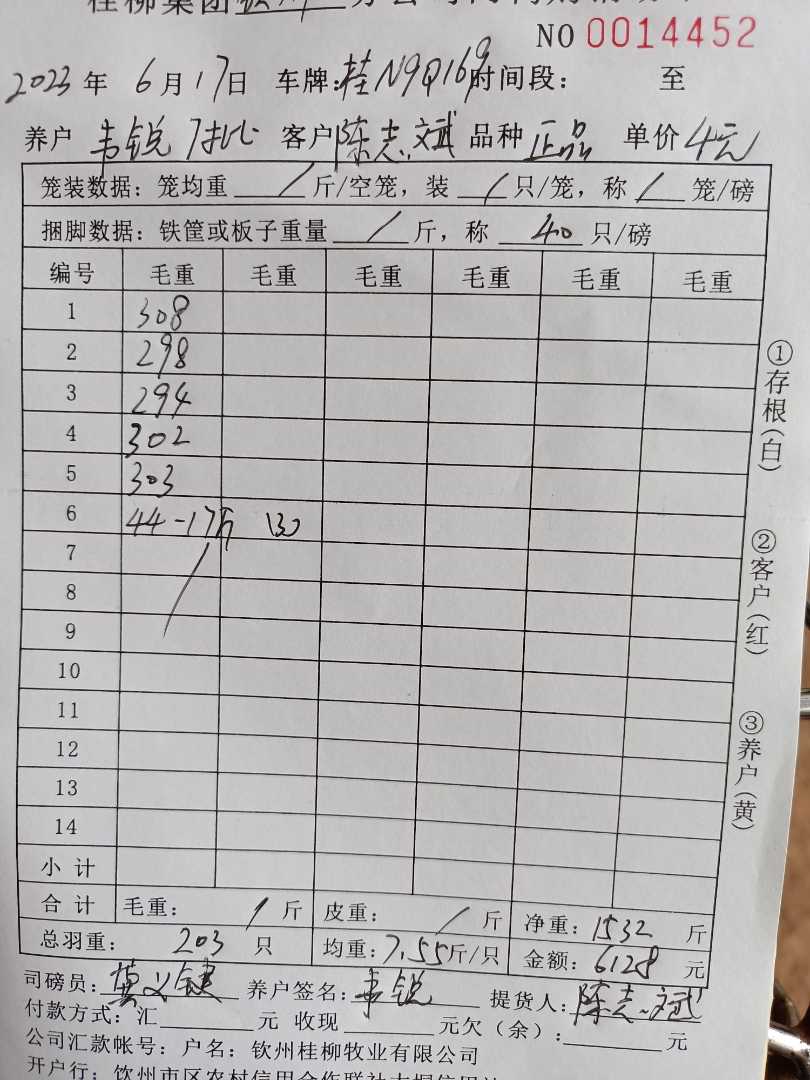 桂柳集团钦州分公司
NO 0014452
2023年 6月17日 车牌:桂N9Q169时间段: 至
养户 韦锐 客户 陈志斌 品种 正品 单价 4元
笼装数据: 笼均重 / 斤/空笼, 装 / 只/笼, 称 / 笼/磅
捆脚数据: 铁筐或板子重量 / 斤, 称 40 只/磅
编号 毛重 毛重 毛重 毛重 毛重 毛重
1 308
2 298
3 294
4 302
5 303
6 44-17斤 (3)
7
8
9
10
11
12
13
14
小计
合计 毛重: / 斤 皮重: / 斤 净重: 1532 斤
总羽重: 203 只 均重: 7.55斤/只 金额: 6128 元
司磅员: 莫义健 养户签名: 韦锐 提货人: 陈志斌
付款方式: 汇 元 收现 元欠(余): 元
公司汇款帐号: 户名: 钦州桂柳牧业有限公司
开户行: 钦州市区农村信用合作联社
①存根(白)
②客户(红)
③养户(黄)